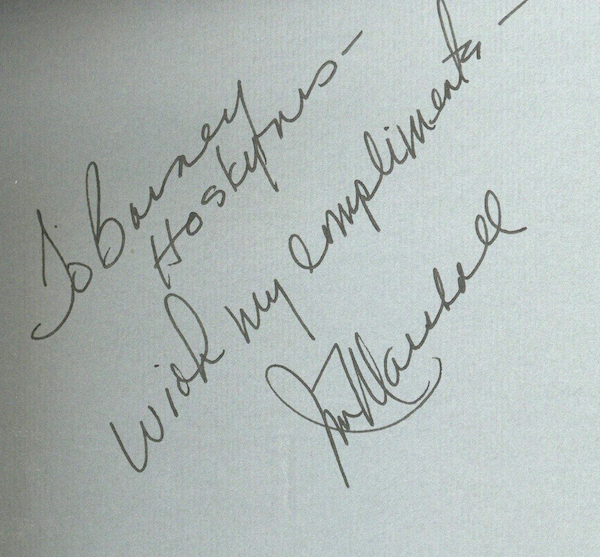 To Barney
Hoskyns –
with my compliments –
Jim Marshall